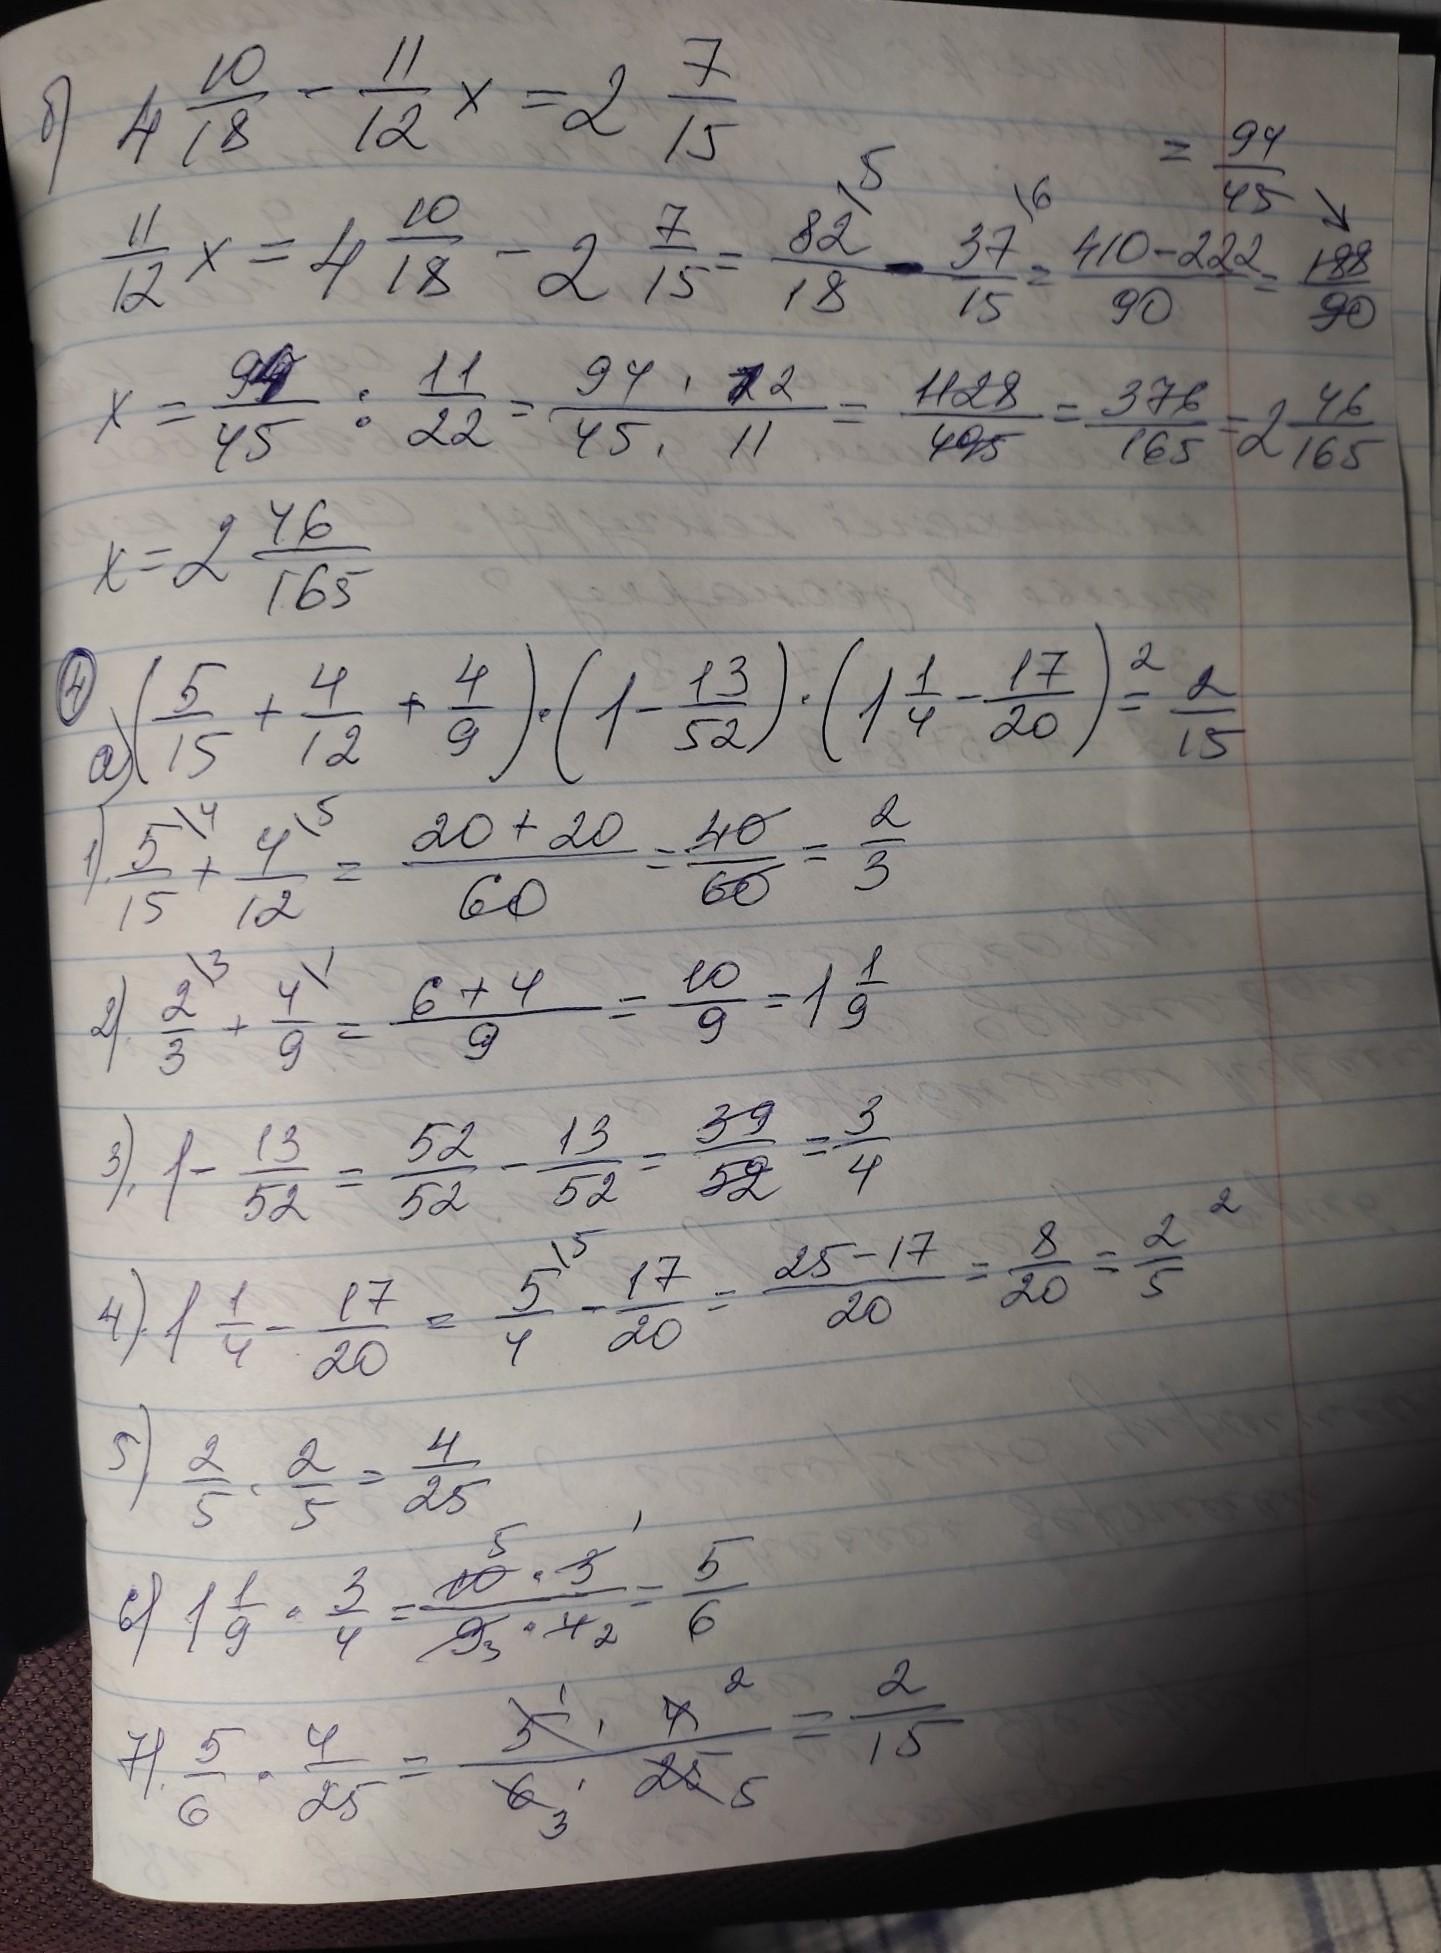 б) 4 10/18 - 11/12 x = 2 7/15
= 94/45 ↘
11/12 x = 4 10/18 - 2 7/15 = 82\5/18 - 37\6/15 = 410-222/90 = 188/90
x = 94/45 : 11/22 = 94 · 12/45 · 11 = 1128/495 = 376/165 = 2 46/165
x = 2 46/165
4
а) (5/15 + 4/12 + 4/9) · (1 - 13/52) · (1 1/4 - 17/20)² = 2/15
1). 5\4/15 + 4\5/12 = 20+20/60 = 40/60 = 2/3
2). 2\3/3 + 4\1/9 = 6+4/9 = 10/9 = 1 1/9
3). 1 - 13/52 = 52/52 - 13/52 = 39/52 = 3/4
4). 1 1/4 - 17/20 = 5\5/4 - 17/20 = 25-17/20 = 8/20 = 2/5 ²
5) 2/5 · 2/5 = 4/25
6) 1 1/9 · 3/4 = 10 5 · 3 1/9 3 · 4 2 = 5/6
7). 5/6 · 4/25 = 5 1 · 4 2/6 3 · 25 5 = 2/15